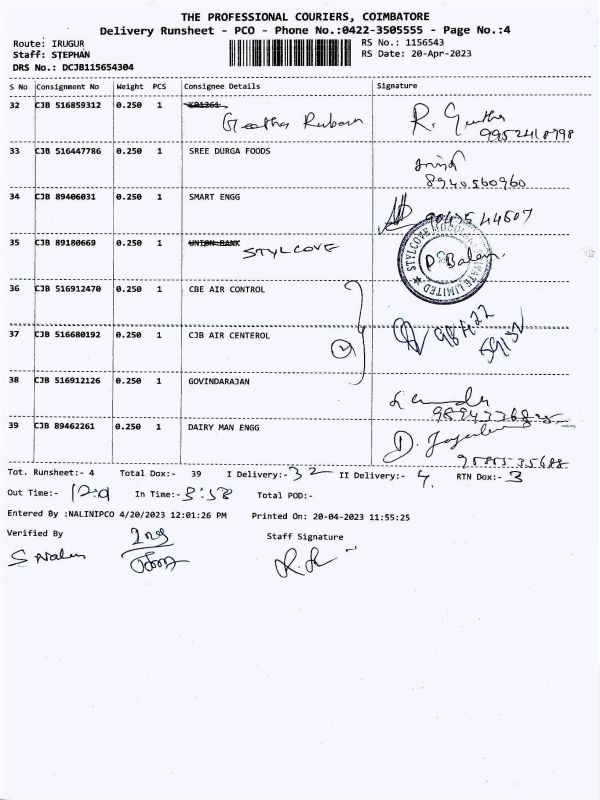 THE PROFESSIONAL COURIERS, COIMBATORE
Delivery Runsheet - PCO - Phone No.:0422-3505555 - Page No.:4
Route: IRUGUR RS No.: 1156543
Staff: STEPHAN RS Date: 20-Apr-2023
DRS No.: DCJB115654304
S No Consignment No Weight PCS Consignee Details Signature
32 CJB 516859312 0.250 1 KR1261
Geetha Ruban R. Geetha
9952418798
33 CJB 516447786 0.250 1 SREE DURGA FOODS
8940560960
34 CJB 89406031 0.250 1 SMART ENGG
9047544607
35 CJB 89180669 0.250 1 UNION BANK
STYLCOVE
P. Balan
36 CJB 516912470 0.250 1 CBE AIR CONTROL
98422
59132
37 CJB 516680192 0.250 1 CJB AIR CENTEROL
38 CJB 516912126 0.250 1 GOVINDARAJAN
39 CJB 89462261 0.250 1 DAIRY MAN ENGG
Tot. Runsheet:- 4 Total Dox:- 39 I Delivery:- 32 II Delivery:- 4 RTN Dox:- 3
Out Time:- 12:01 In Time:- 8:58 Total POD:-
Entered By :NALINIPCO 4/20/2023 12:01:26 PM Printed On: 20-04-2023 11:55:25
Verified By Staff Signature